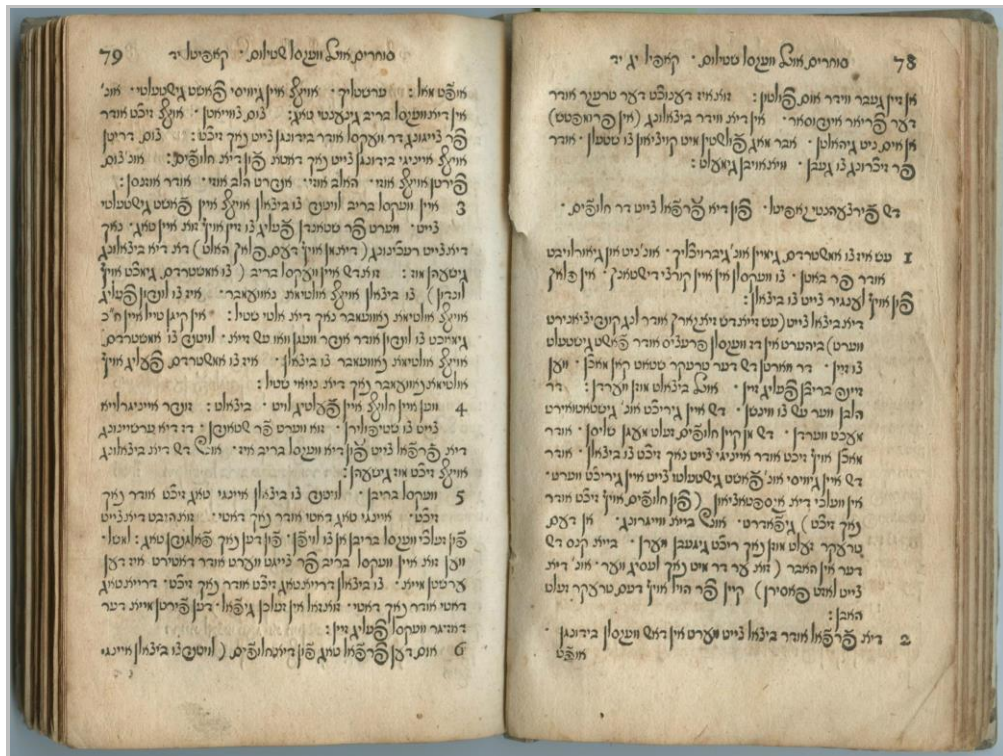 78 סוחרים אונ' וועקסל שטילוס · קאפיטל יג יד
אן זיין געבר ווידר אום פֿאלטן : זוא איז דענוכט דער טרעקר אודר
דער פריאר אינדוסאר · אין דיא ווידר ביצאלונג (אין פרומפטו)
אן אים ניט גיהאלטן · אבר מאג פֿאלשטין מיט קויציאון צו שטעלן · אודר
פר זיכרונג צו געבן · וויא אויבן גימעלט :
דש פֿירצעהנטי קאפיטל · פֿון דיא פֿרפֿאל צייט דר חלופֿים ·
1 עש איז צו אמשטרדם, גימיין אונ' גיברויכליך · אונ' ניט אין גיאורלויבט
אודר פר באטן · צו וועקסלן אין איין קורצי דישטאנק · אין פלאץ
פֿון אויף לענגיר צייט צו ביצאלן :
דיא ביצאל צייט (עש זייא דש זיא קארץ אודר לנג קונדיציאנירט
ווערט) ביהערט אין דז וועקסלן פרעציס אודר פֿאשט גישטעלט
צו זיין · דר ווארטן דש דער טרעקר שטאט קאן מאכן · ווען
זיינה בריבן פֿעליג זיין · אונ' ביצאלט מוזן ווערדן : דר
הלבן ווער עש צו ווינשן · דש איין גיריכט אונ' גישטאטואירט
מעכט ווערדן · דש מן קיין חלופֿים, זעלט מעגן שליסן · אודר
מאכן אויף זיכט אודר אייניגי צייט נאך זיכט צו ביצאלן · אודר
דש איין גיוויסי אונ' פֿאשט גישטעלטי צייט איין גיריכט ווערט ·
אין וועלכי דיא אקספטאציאון (פֿון חלופֿים, אויף זיכט אודר
נאך זיכט) גיפֿאדרט · אונ' בייא ווייגרונג · אן דעם
טרעקר זעלט מוזן נאך ריכט גיגעבן ווערן · בייא קנס דש
דער אין האבר (זוא ער דר מיט נאך לעסיג ווער · אונ' דיא
צייט לאזט פאסירן) קיין פר הויל אויף דעם, טרעקר זעלט
האבן :
2 דיא פֿרפֿאל אודר ביצאל צייט ווערט אין דאש וועקסלן בידונגן ·
אופֿט
79 סוחרים אונ' וועקסל שטילוס · קאפיטל יד
אופֿט מאל : ערשטליך · אויף איין גיוויסי פֿאשט גישטעלטי · אונ'
אין דיא וועקסל בריב גינענטי טאג : צום, צווייאטן · אויף זיכט אודר
פר צייגונג דר וועקסל אודר בידונגן צייט נאך זיכט : צום, דריטן
אויף אייניגי בידונגן צייט נאך דאטא פֿון דיא חלופֿים : אונ' צום
פֿירטן אויף אוזי · האלב אוזי · אנדרט הלב אוזי · אודר אוזנסן :
3 איין וועקסל בריב לויטנד צו ביצאלן אויף איין פֿאשט גישטעלטי
צייט · ווערט פר שטאנדן פֿעליג צו זיין אויף זוא איין טאג · נאך
דיא צייט רעכינונג (דיא מן אויף דעם, פלאץ האלט) דא דיא ביצאלונג
גישעהן מוז : זוא דש איין וועקסל בריב (צו אמשטרדם, גימכט אויף
לונדון) צו ביצאלן אויף אולטימא נאוועמבר · איז צו לונדון פֿעליג
אויף אולטימא נאוועמבר נאך דיא אלטי שטיל : אין קיגן טייל איין ח"כ
גימאכט צו לונדון אודר אנדר וועגן וואו עש זייא · לויטנד צו אמשטרדם,
אויף אולטימא נאוועמבר צו ביצאלן · איז צו אמשטרדם, פֿעליג אויף
אולטימא נאוועמבר נאך דיא נייאי שטיל :
4 ווען איין חילוף איין פֿעלטיג לויט · ביצאלט : זונדר אייניגרלייא
צייט צו שטיפולירן · זוא ווערט פר שטאנדן · דז דיא ערשיינונג
דיא פֿרפֿאל צייט פֿון דיא וועקסל בריב איז · אונ' דש דיא ביצאלונג
אויף זיכט מוז גישעהן :
5 וועקסל בריבן · לויטנד צו ביצאלן אייניגי טאג זיכט אודר נאך
זיכט · אייניגי טאג דאטי אודר נאך דאטי · זוא היבט דיא צייט
פֿון זעלכי וועקסל בריבן אן צו לויפֿן · פֿון דען נאך פֿאלגנדן טאג : למשל ·
ווען זוא איין וועקסל בריב פר צייגט ווערט אודר דאטירט איז דען
ערשטן מייא · צו ביצאלן דרייא טאג זיכט אודר נאך זיכט · דרייא טאג
דאטי אודר נאך דאטי · זוא איז אין זעלכן גיפֿאל · דען פֿירטן מייא דער
דאזיגר וועקסל פֿעליג זיין :
6 אום, דען פֿרפֿאל טאג פֿון דיא חלופֿים, (לויטנד צו ביצאלן אייניגי